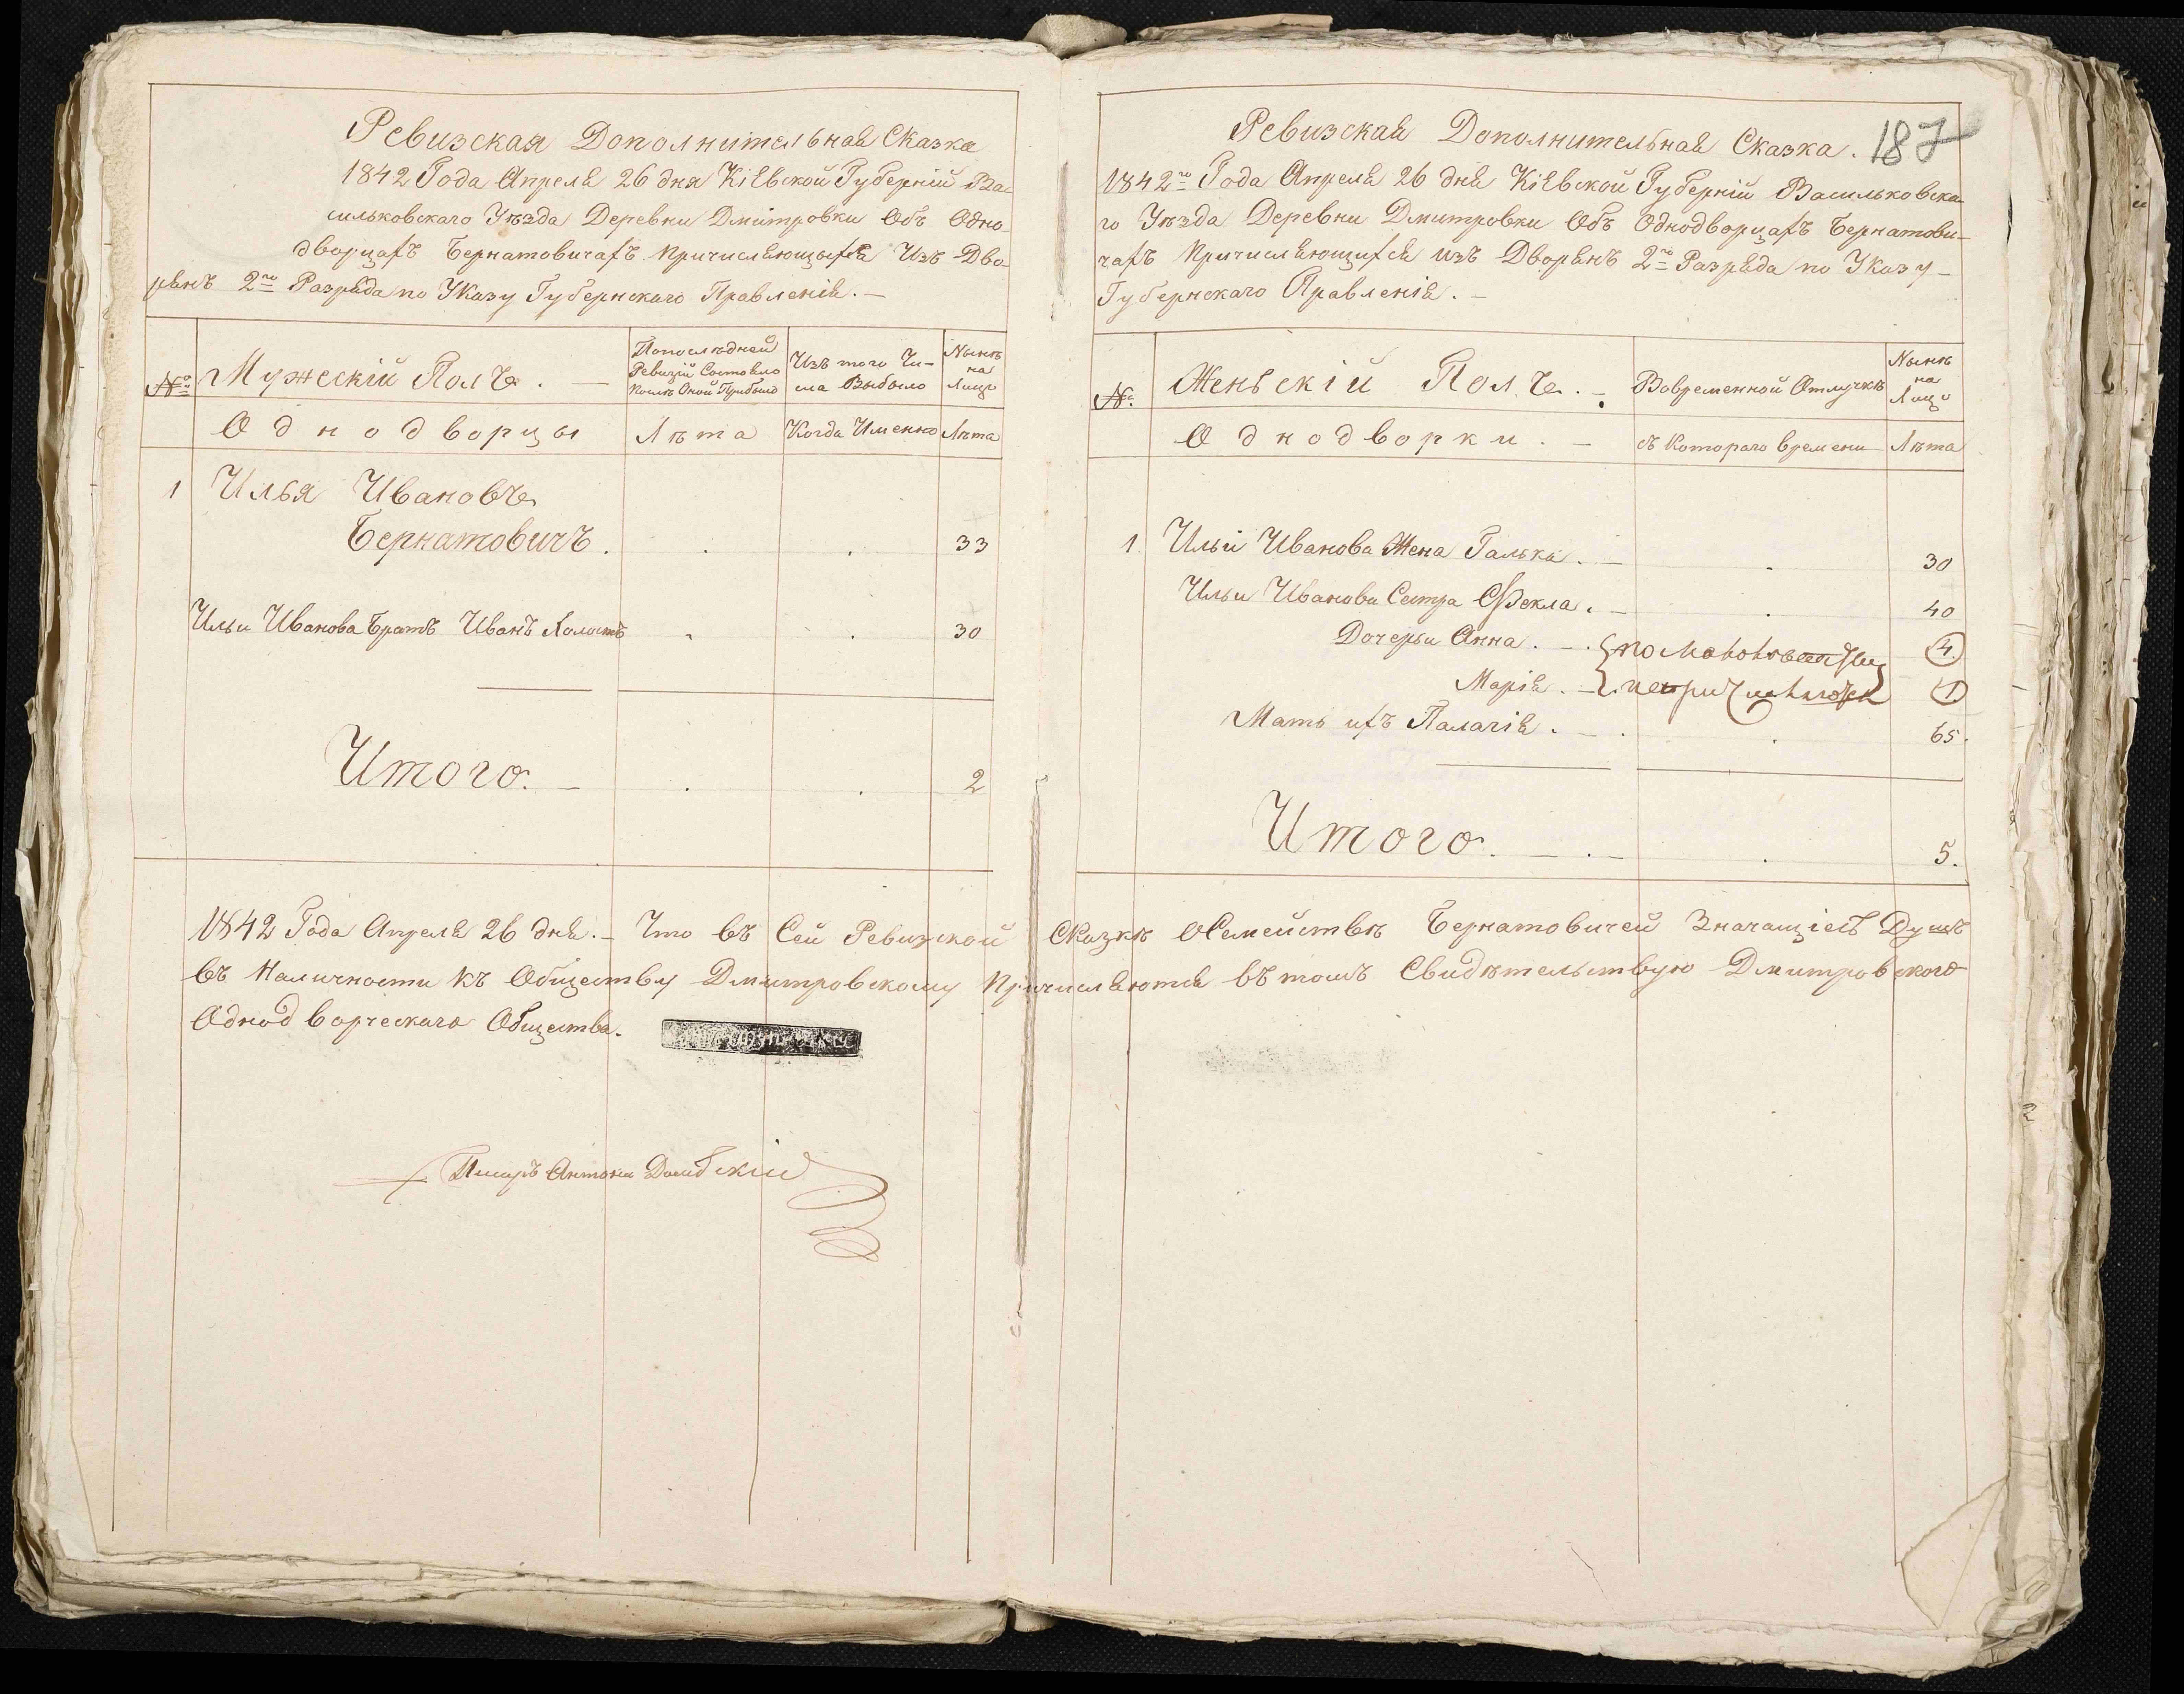 Ревизская Дополнительная Сказка
1842 Года Апреля 26 дня Кіевской Губерніи Ва-
сильковскаго Уѣзда Деревни Дмитровки Объ Одно-
дворцахъ Бернатовичахъ Причисляющыхся Изъ Дво-
рянъ 2го Разряда по Указу Губернскаго Правленія. —
№ Мужескій Полъ. —
Попослѣдней Ревизіи Состояло Послѣ Оной Прибыло
Изъ того Чи-
сла Выбыло
Нынѣ на Лицо
Однодворцы Лѣта Когда Именно Лѣта
1 Илья Ивановъ
Бернатовичъ. 33
Ильи Иванова Братъ Иванъ Холостъ 30
Итого. — 2
Ревизская Дополнительная Сказка. 187
1842го Года Апреля 26 дня Кіевской Губерніи Васильковска-
го Уѣзда Деревни Дмитровки Объ Однодворцахъ Бернатови-
чахъ Причисляющихся изъ Дворянъ 2го Разряда по Указу
Губернскаго Правленія. —
№ Женьскій Полъ. — Вовременной Отлучкѣ Нынѣ на Лицо
Однодворки. — съ Котораго времени Лѣта
1. Ильи Иванова Жена Галька. — 30
Ильи Иванова Сестра Фекла. — 40
Дочерьи Анна. — 4
Марія. — 1
Мать ихъ Палагія. — 65.
Итого. — 5.
1842 Года Апреля 26 дня. — Что въ Сей Ревизской Сказкѣ ОСемействѣ Бернатовичей Значащіесь Душъ
въ Наличности къ Обществу Дмитровскому Причисляются вътомъ Свидѣтельствую Дмитровского
Однодворческаго Общества.
Писарь Антони Домбскій